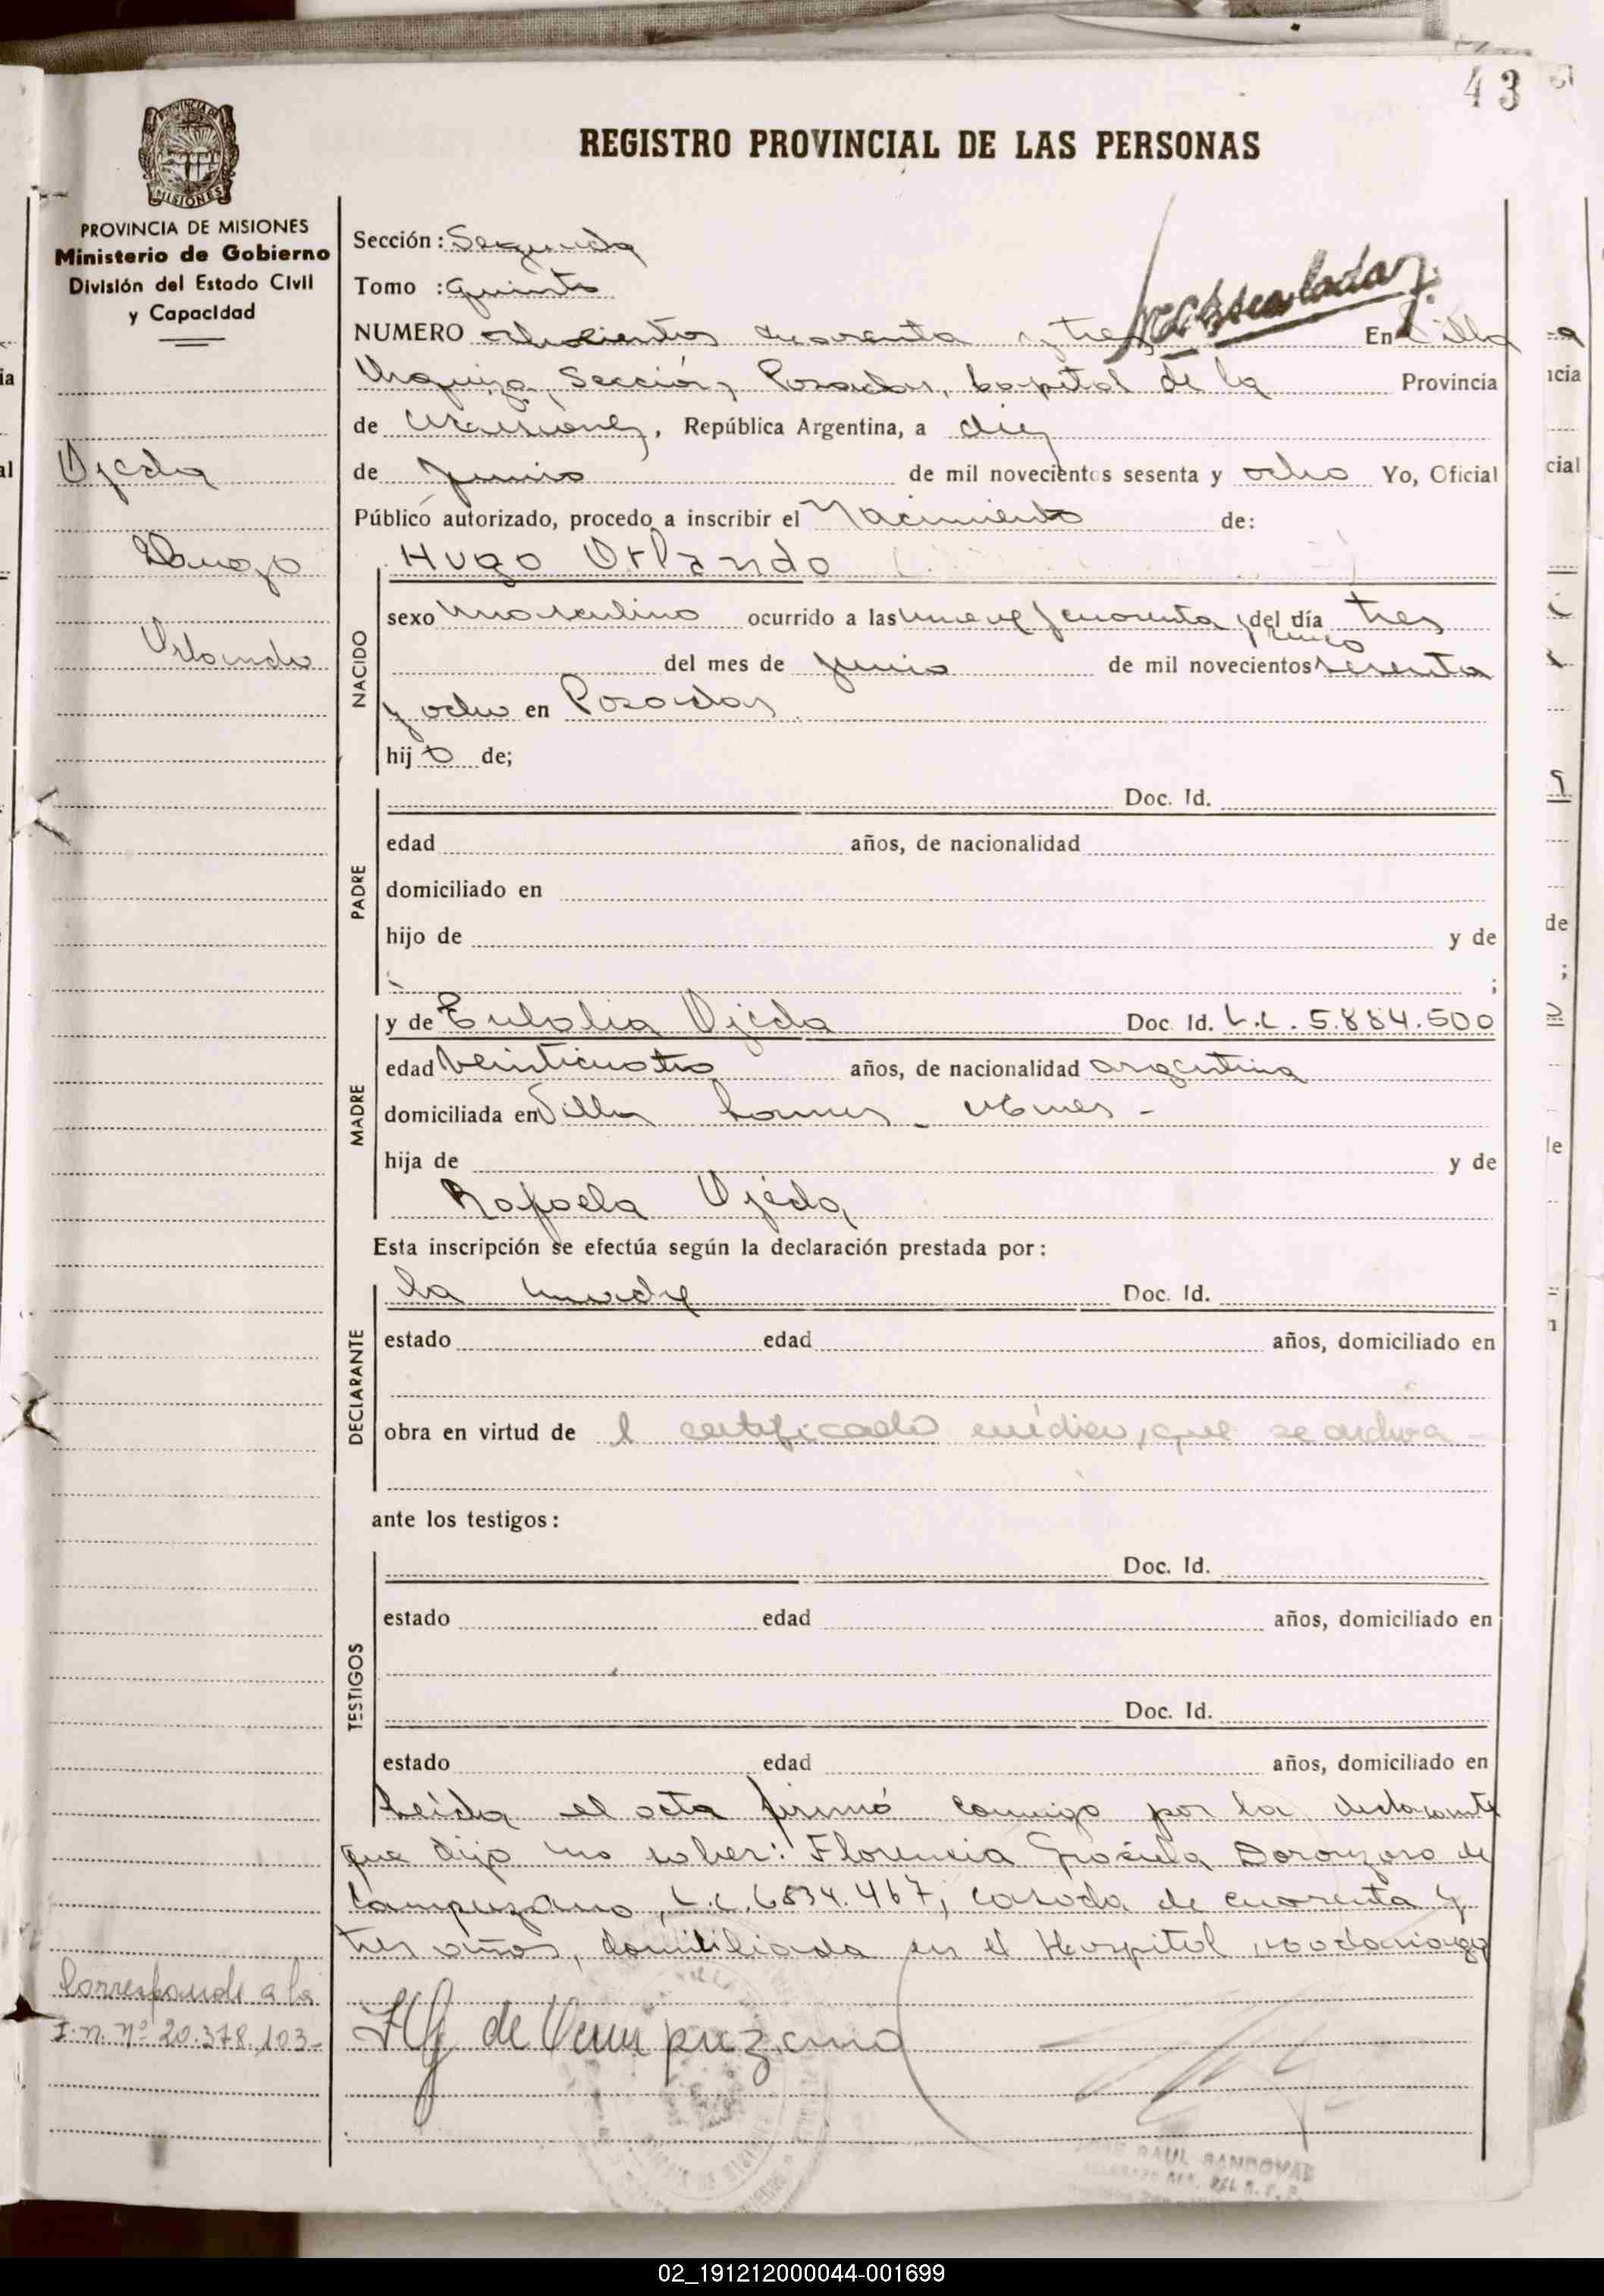 43
REGISTRO PROVINCIAL DE LAS PERSONAS
PROVINCIA DE MISIONES
Ministerio de Gobierno
División del Estado Civil
y Capacidad
Sección: Segunda
Tomo : Quinto
NUMERO doscientos cuarenta y tres En Villa
Urquiza, Sección, Posadas, Capital de la Provincia
de Misiones, República Argentina, a diez
de Junio de mil novecientos sesenta y ocho Yo, Oficial
Público autorizado, procedo a inscribir el Nacimiento de:
Ojeda
Hugo
Orlando
Hugo Orlando
NACIDO
sexo masculino ocurrido a las nueve y cuarenta y cinco del día tres
del mes de Junio de mil novecientos sesenta
y ocho en Posadas
hijo de;
PADRE
Doc. Id.
edad años, de nacionalidad
domiciliado en
hijo de y de
;
MADRE
y de Eulalia Ojeda Doc. Id. L.C. 5.884.500
edad veinticuatro años, de nacionalidad argentina
domiciliada en Villa
hija de y de
Rafaela Ojeda
Esta inscripción se efectúa según la declaración prestada por:
DECLARANTE
la madre Doc. Id.
estado edad años, domiciliado en
obra en virtud de l certificado médico, que se archiva
ante los testigos:
TESTIGOS
Doc. Id.
estado edad años, domiciliado en
Doc. Id.
estado edad años, domiciliado en
Leída el acta firmó conmigo por la declarante
que dijo no saber: Florencia Graciela de
Campuzano, L.C. 6834.467, casada de cuarenta y
tres años, domiciliada en el Hospital
Corresponde a la
I.N. Nº 20.378.103-
de Campuzano
RAUL SANDOVAL
02_191212000044-001699